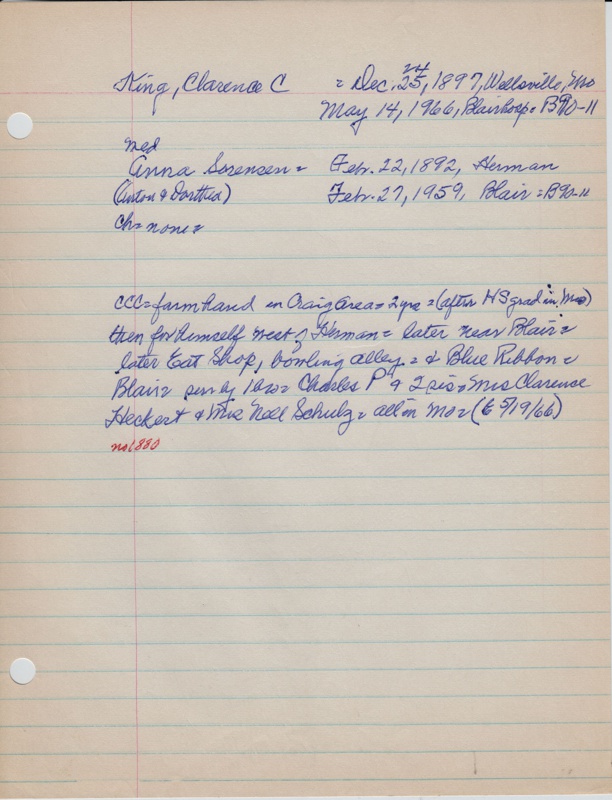 King, Clarence C = Dec. 25, 1897, Wellsville, Mo
24
May 14, 1966, Blair hosp = B90-11
med
Anna Sorensen = Feb. 22, 1892, Herman
(Anton & Dorthea) Feb. 27, 1959, Blair = B90-11
Ch = none =
CCC = farm hand in Craig area = 2 yrs = (after HS grad in Mo)
then for himself west of Herman = later near Blair =
later Eat Shop, bowling alley = & Blue Ribbon =
Blair = surv by 1 bro = Charles P & 2 sis = Mrs Clarence
Heckert & Mrs Noll Schulz = all in Mo = (E 5/19/66)
no 1880